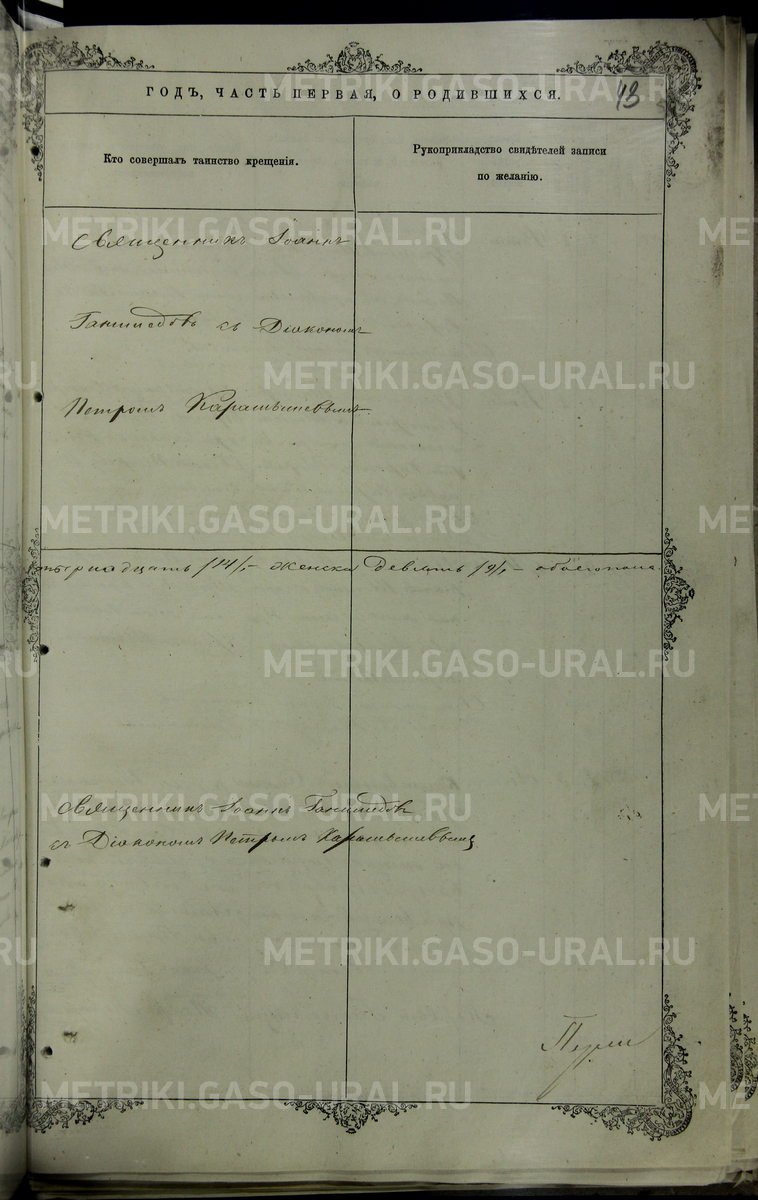 ГОДЪ, ЧАСТЬ ПЕРВАЯ, О РОДИВШИХСЯ.
43
Кто совершалъ таинство крещенія.
Рукоприкладство свидѣтелей записи
по желанію.
Священникъ Іоаннъ
Ганимедовъ съ Діакономъ
Петромъ Карамышевымъ
женска девять /9/, – обоего пола
Священникъ Іоаннъ Ганимедовъ
съ Діакономъ Петромъ Карамышевымъ
METRIKI.GASO-URAL.RU